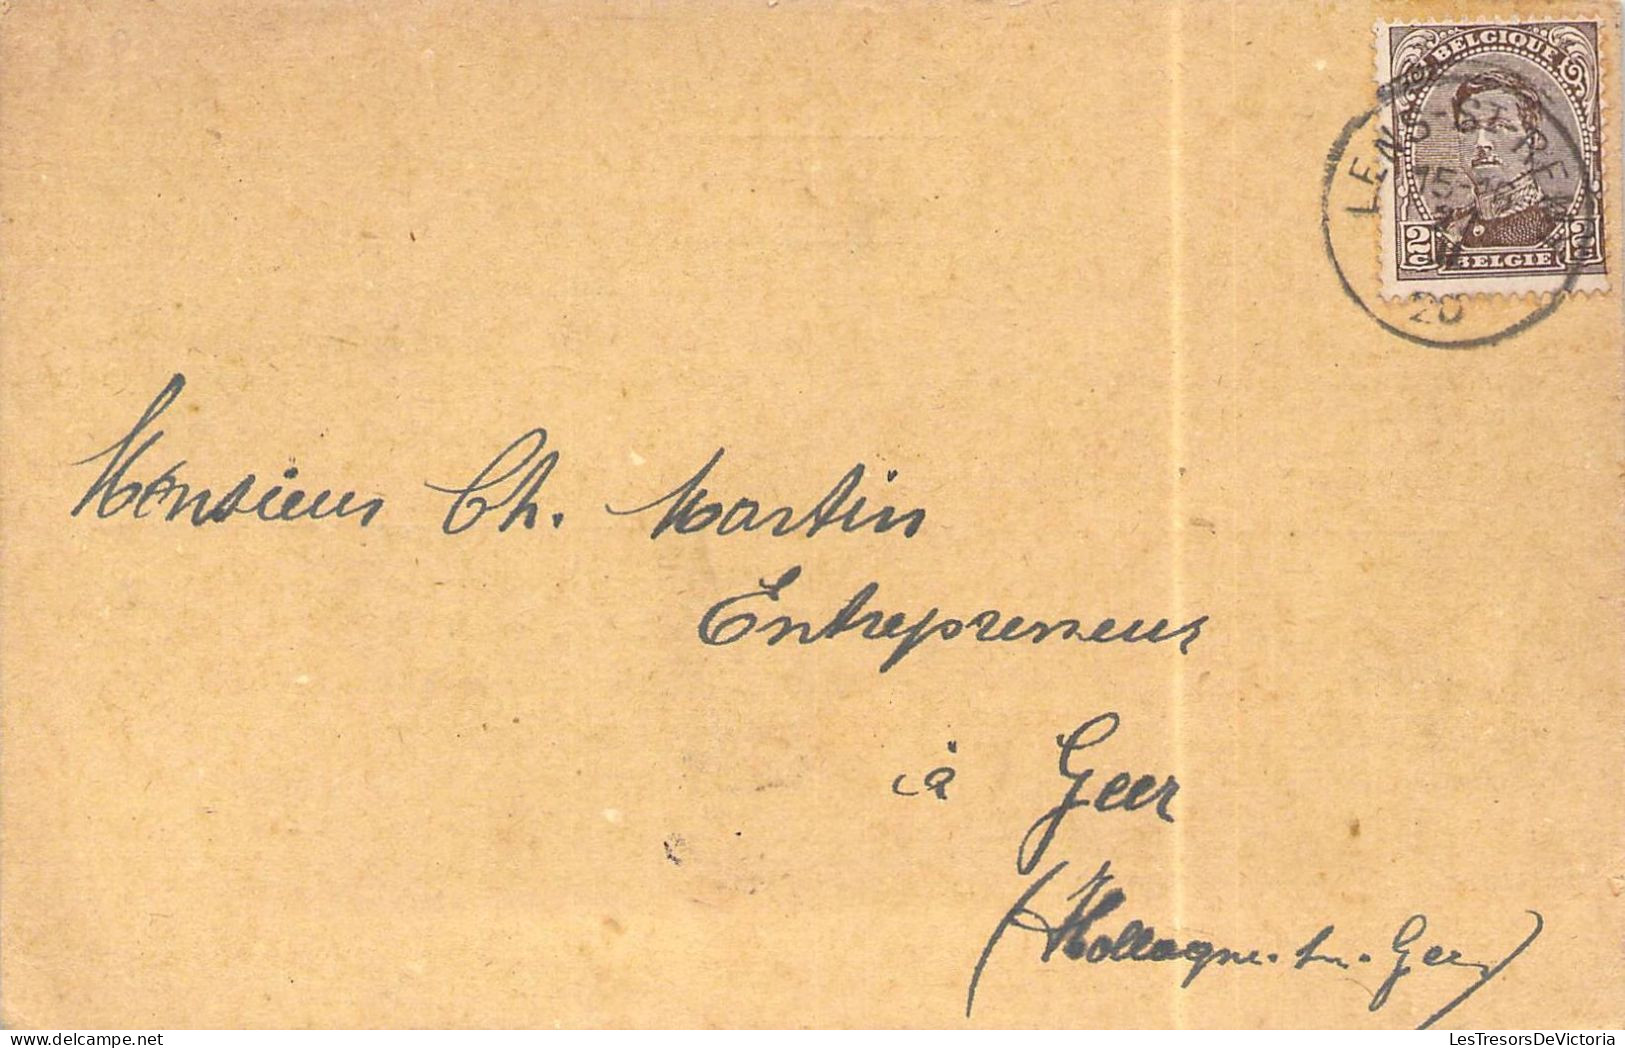 BELGIQUE
LENS-ST-REMY
15-16
20
2c 2c
BELGIË
Monsieur Ch. Martin
Entrepreneur
à Geer
(Hollogne-sur-Geer)
LesTresorsDeVictoria